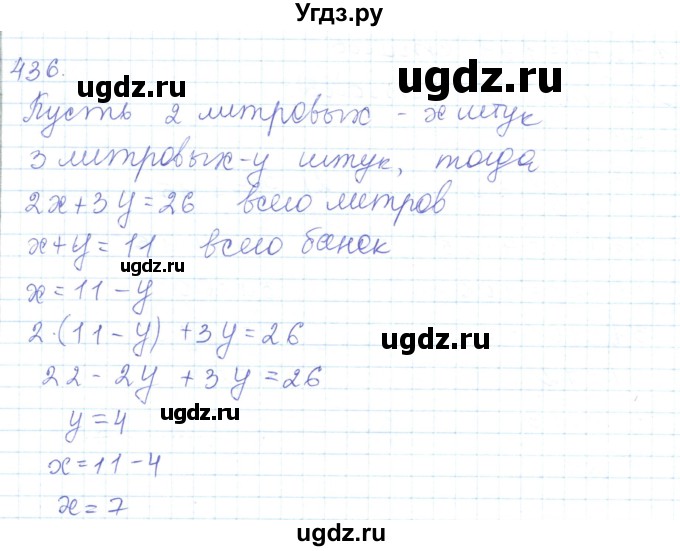 Угдз.ру
436.
ugdz.ru
ugdz.ru
Пусть 2 литровых - x штук
3 литровых - y штук, тогда
2x+3y=26 всего литров
x+y=11 всего банок
ugdz.ru
x=11-y
2·(11-y)+3y=26
ugdz.ru
22-2y+3y=26
y=4
ugdz.ru
x=11-4
x=7
ugdz.ru